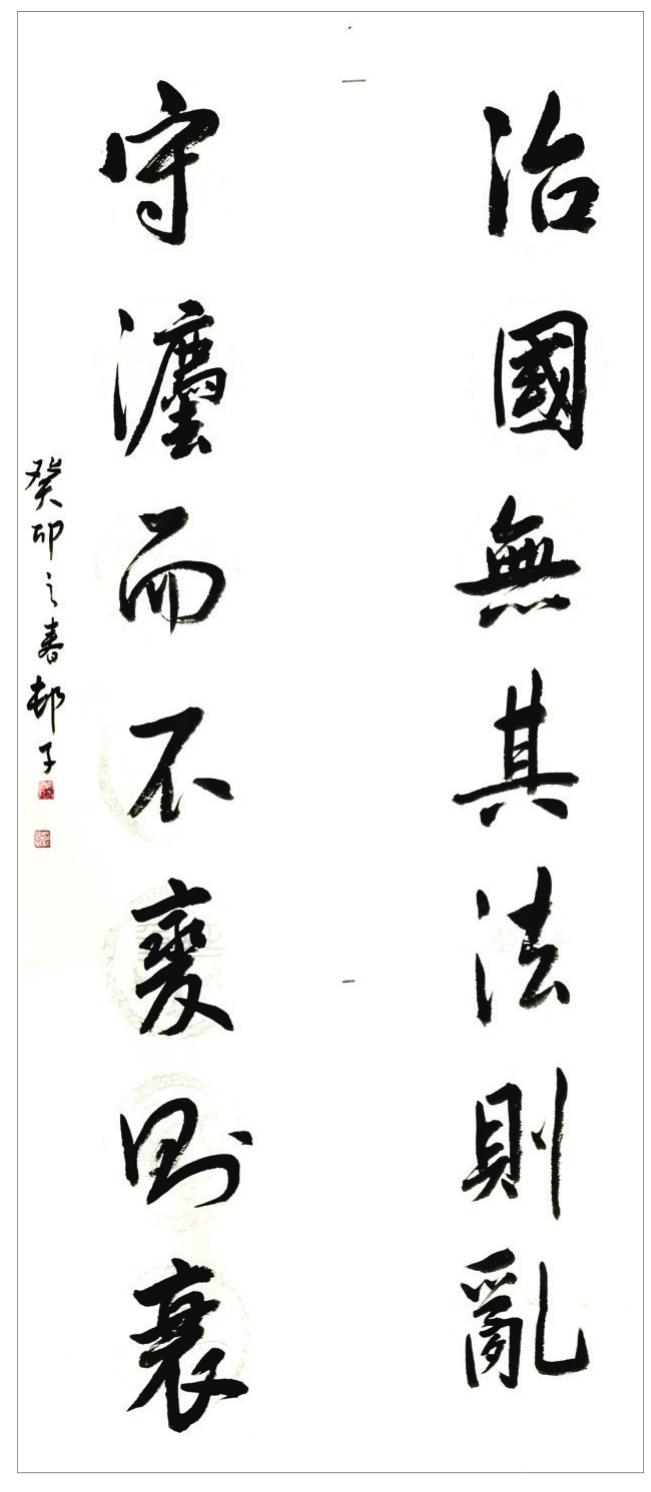 治國無其法則亂
守灋而不變則衰
癸卯之春邨子